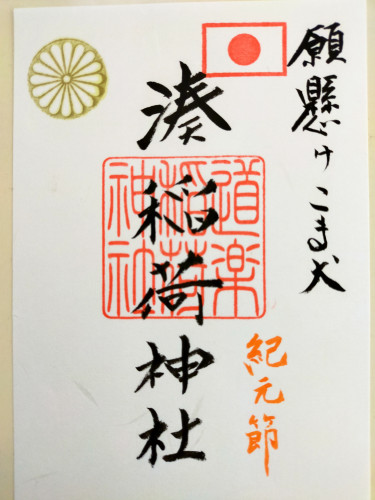 願懸けこま犬
湊稲荷神社
道楽
稲荷
神社
紀元節